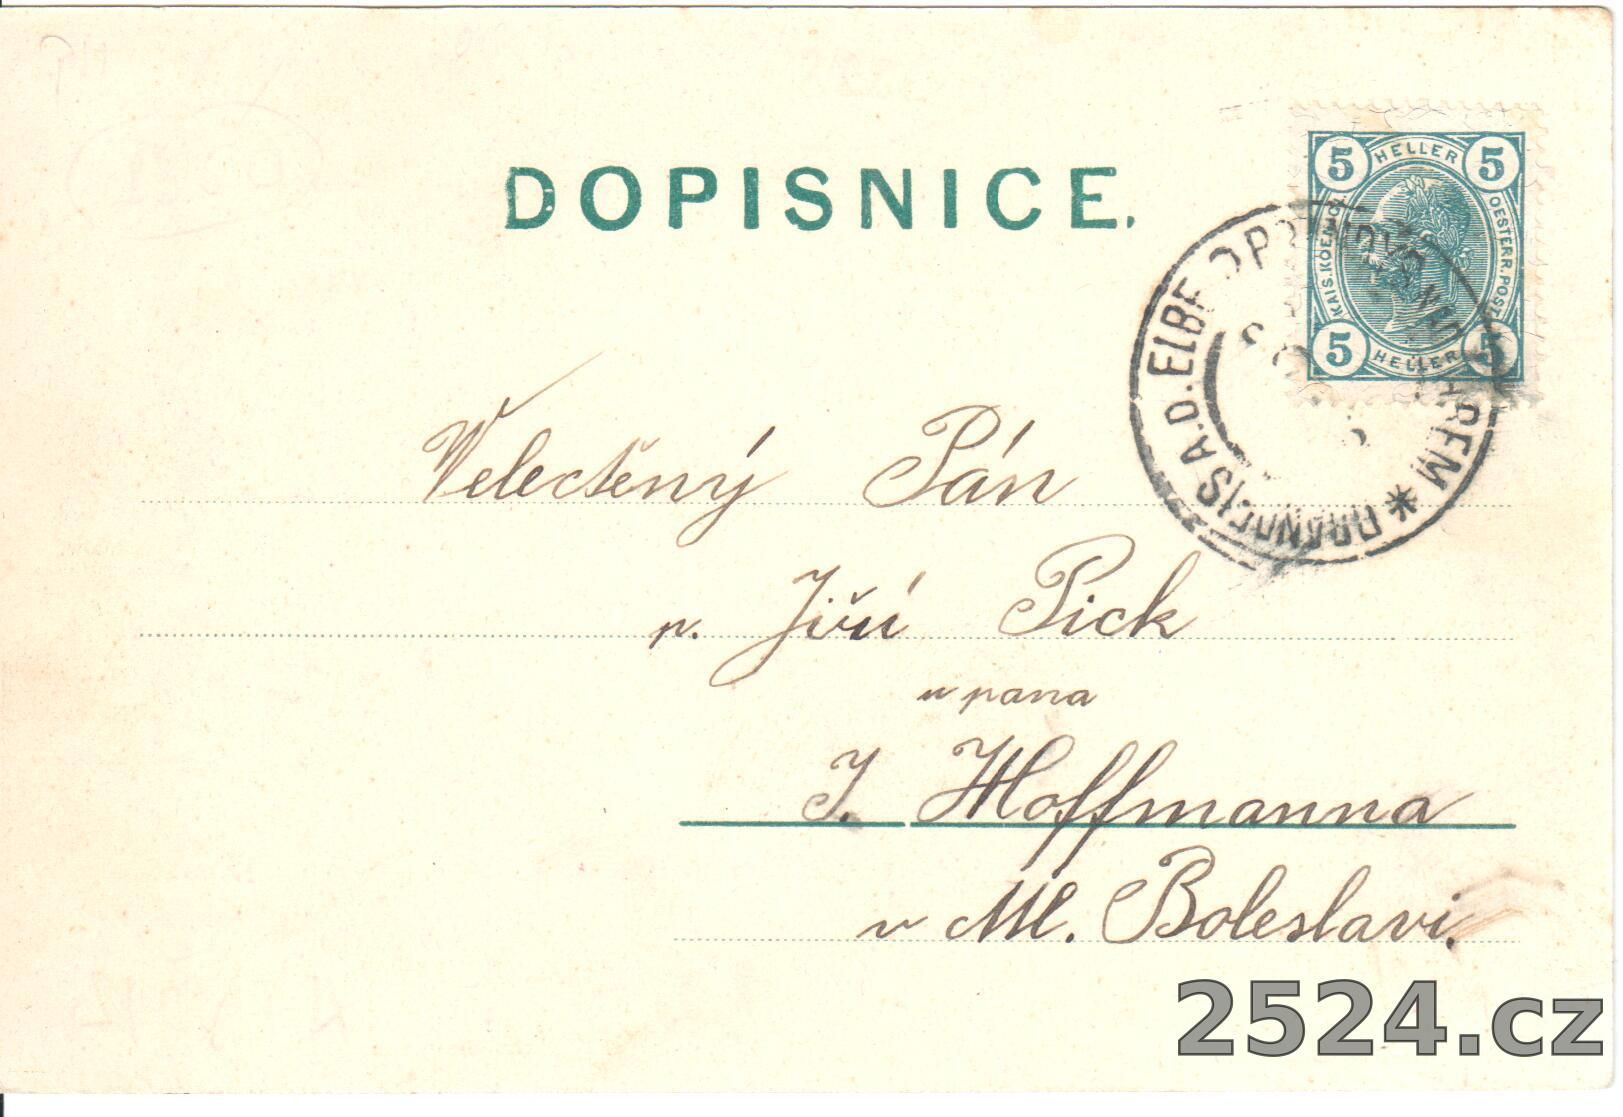 DOPISNICE.
5 HELLER 5
KAIS. KOENIGL.
OESTERR. POST
5 HELLER 5
BRANDEIS A.D. ELBE
Velectěný Pán
p. Jiří Pick
u pana
J. Hoffmanna
v Ml. Boleslavi.
2524.cz